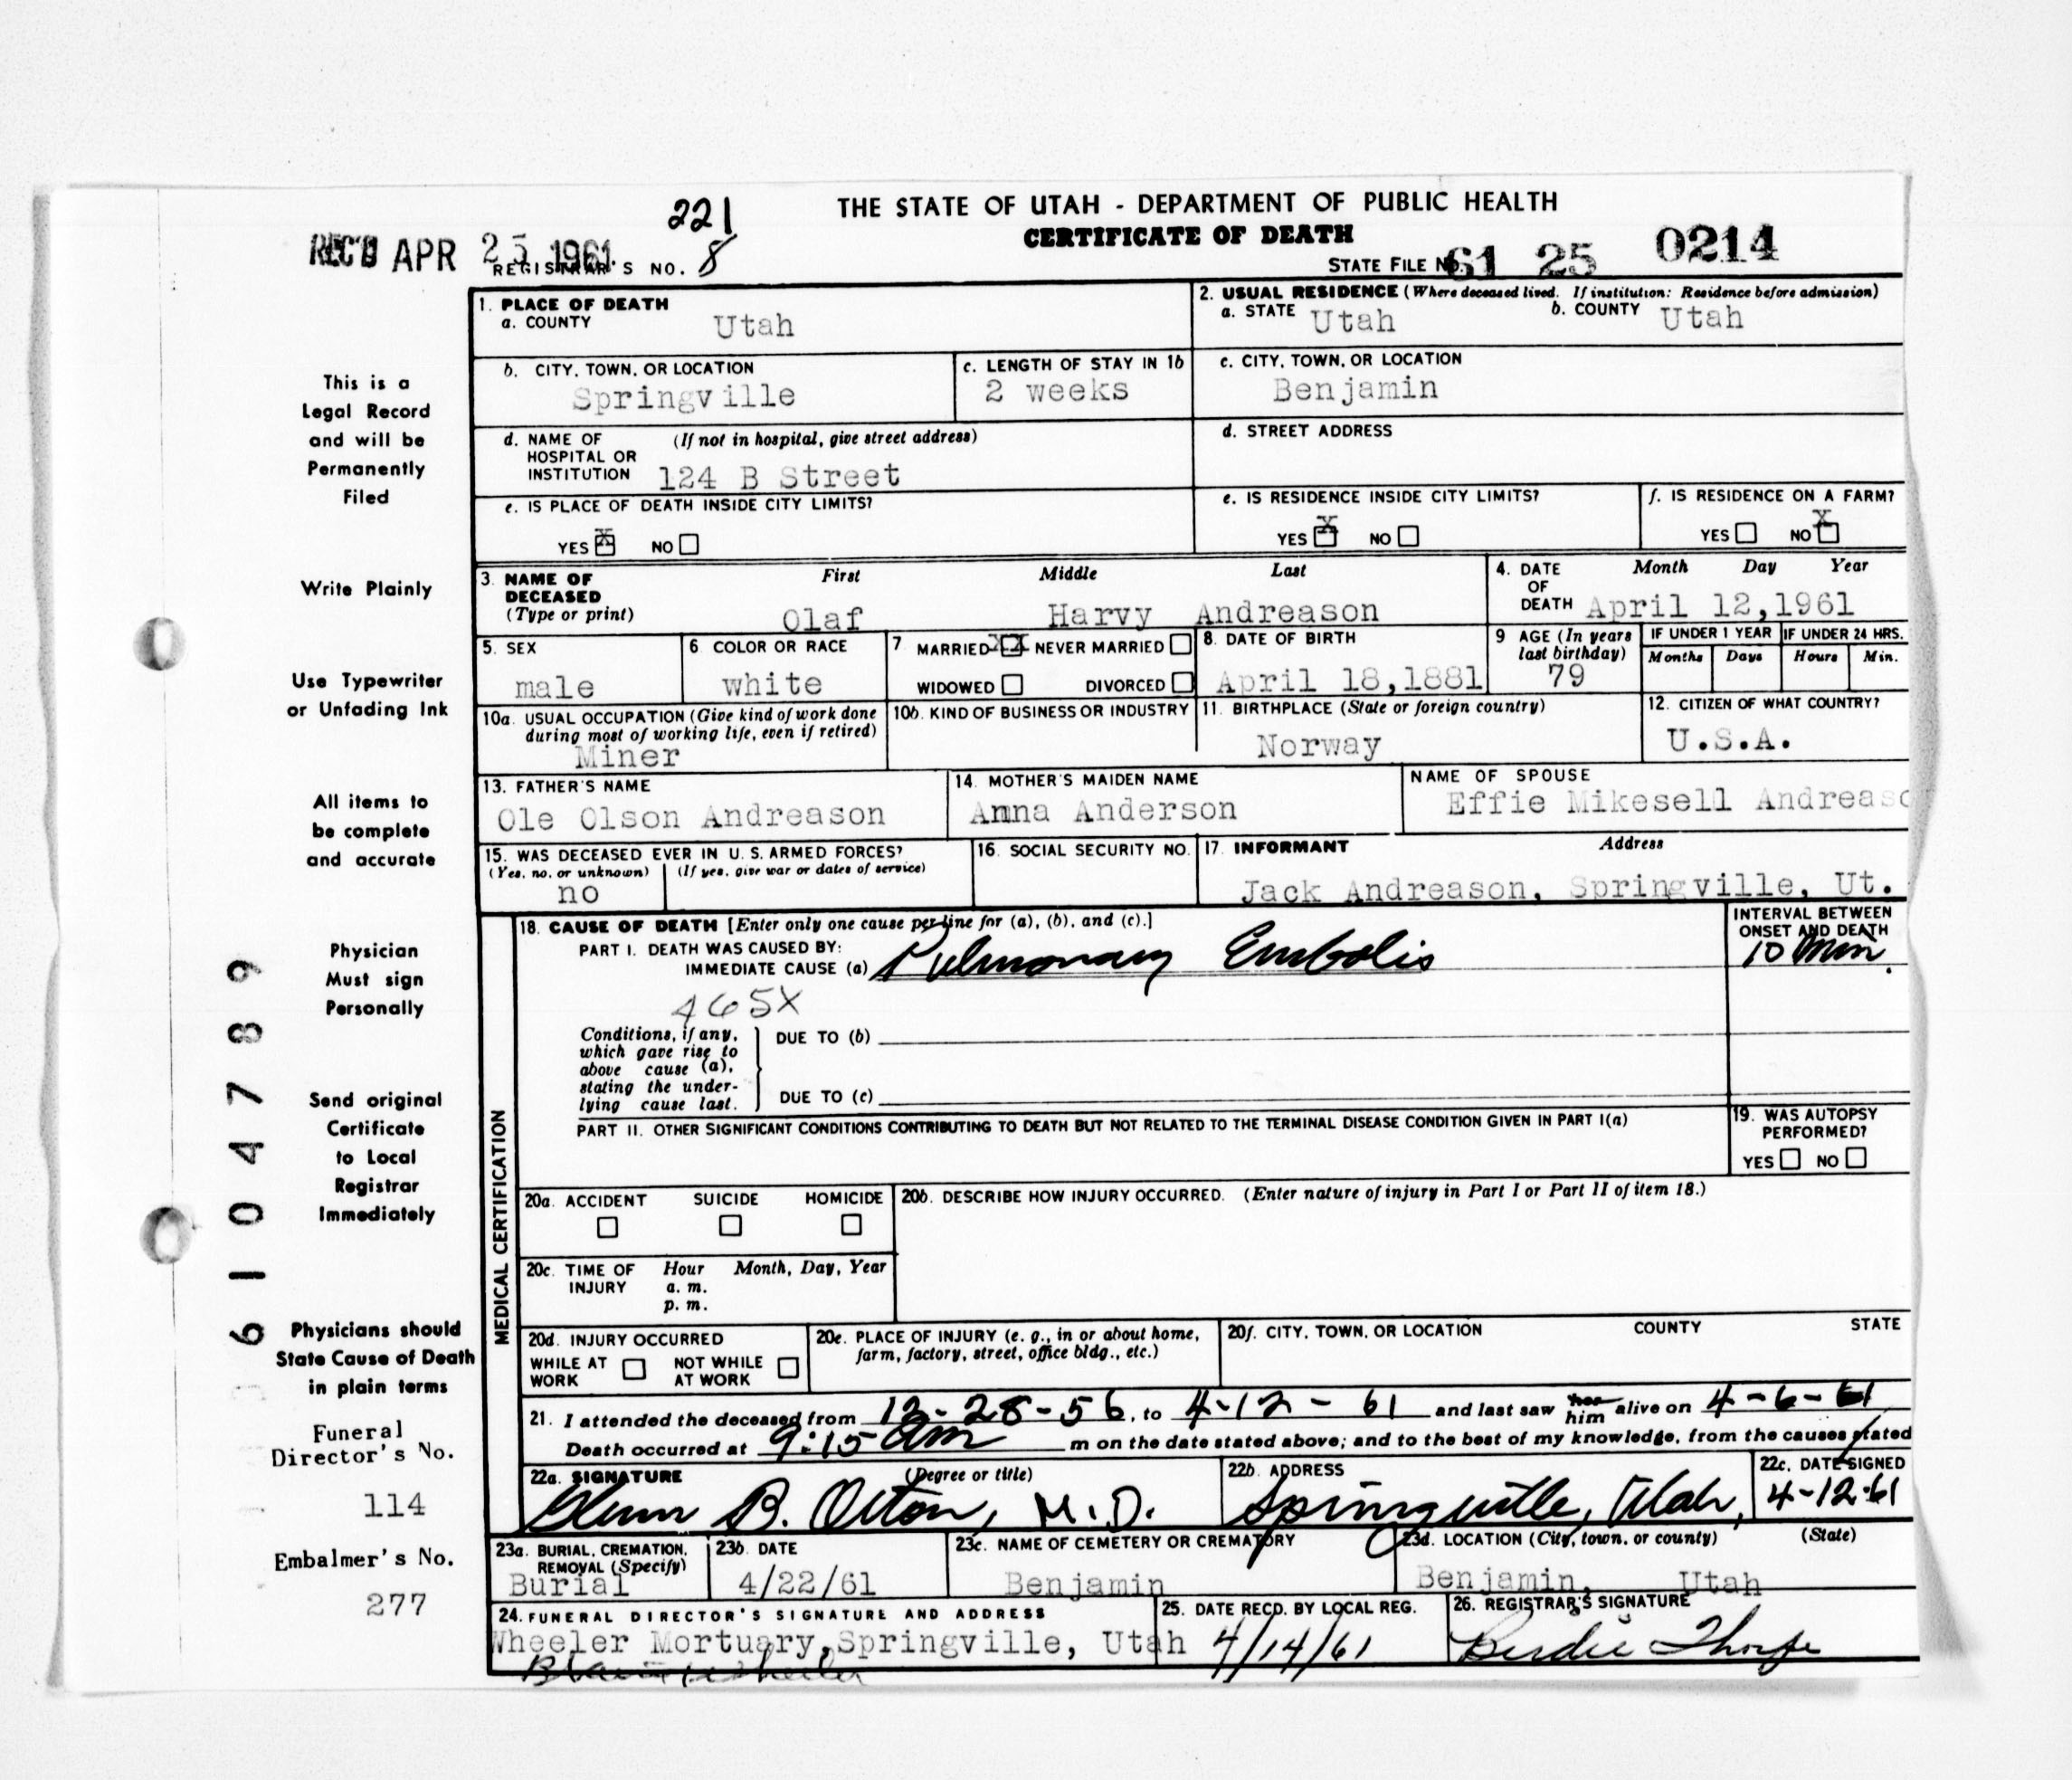 THE STATE OF UTAH - DEPARTMENT OF PUBLIC HEALTH
CERTIFICATE OF DEATH
221
REC'D APR 25 1961
REGISTRAR'S NO. 8
STATE FILE NO. 61 25 0214
1. PLACE OF DEATH
a. COUNTY Utah
2. USUAL RESIDENCE (Where deceased lived. If institution: Residence before admission)
a. STATE Utah b. COUNTY Utah
b. CITY, TOWN, OR LOCATION
Springville
c. LENGTH OF STAY IN 1b
2 weeks
c. CITY, TOWN, OR LOCATION
Benjamin
d. NAME OF HOSPITAL OR INSTITUTION (If not in hospital, give street address)
124 B Street
d. STREET ADDRESS
e. IS PLACE OF DEATH INSIDE CITY LIMITS?
YES X NO
e. IS RESIDENCE INSIDE CITY LIMITS?
YES X NO
f. IS RESIDENCE ON A FARM?
YES NO X
3. NAME OF DECEASED (Type or print)
First Middle Last
Olaf Harvy Andreason
4. DATE OF DEATH Month Day Year
April 12,1961
5. SEX
male
6 COLOR OR RACE
white
7 MARRIED XX NEVER MARRIED
WIDOWED DIVORCED
8. DATE OF BIRTH
April 18,1881
9 AGE (In years last birthday)
79
IF UNDER 1 YEAR
Months Days
IF UNDER 24 HRS.
Hours Min.
10a. USUAL OCCUPATION (Give kind of work done during most of working life, even if retired)
Miner
10b. KIND OF BUSINESS OR INDUSTRY
11. BIRTHPLACE (State or foreign country)
Norway
12. CITIZEN OF WHAT COUNTRY?
U.S.A.
13. FATHER'S NAME
Ole Olson Andreason
14. MOTHER'S MAIDEN NAME
Anna Anderson
NAME OF SPOUSE
Effie Mikesell Andreaso
15. WAS DECEASED EVER IN U. S. ARMED FORCES?
(Yes, no, or unknown) (If yes, give war or dates of service)
no
16. SOCIAL SECURITY NO.
17. INFORMANT Address
Jack Andreason, Springville, Ut.
MEDICAL CERTIFICATION
18. CAUSE OF DEATH [Enter only one cause per line for (a), (b), and (c).]
PART I. DEATH WAS CAUSED BY:
IMMEDIATE CAUSE (a) Pulmonary Embolis
465X
INTERVAL BETWEEN ONSET AND DEATH
10 Min.
Conditions, if any, which gave rise to above cause (a), stating the underlying cause last.
DUE TO (b)
DUE TO (c)
PART II. OTHER SIGNIFICANT CONDITIONS CONTRIBUTING TO DEATH BUT NOT RELATED TO THE TERMINAL DISEASE CONDITION GIVEN IN PART I(a)
19. WAS AUTOPSY PERFORMED?
YES NO
20a. ACCIDENT SUICIDE HOMICIDE
20b. DESCRIBE HOW INJURY OCCURRED. (Enter nature of injury in Part I or Part II of item 18.)
20c. TIME OF INJURY Hour Month, Day, Year
a. m.
p. m.
20d. INJURY OCCURRED
WHILE AT WORK NOT WHILE AT WORK
20e. PLACE OF INJURY (e. g., in or about home, farm, factory, street, office bldg., etc.)
20f. CITY, TOWN, OR LOCATION COUNTY STATE
21. I attended the deceased from 12-28-56, to 4-12-61 and last saw her him alive on 4-6-61
Death occurred at 9:15 am m on the date stated above; and to the best of my knowledge, from the causes stated
22a. SIGNATURE (Degree or title)
Glenn B. Orton, M.D.
22b. ADDRESS
Springville, Utah,
22c. DATE SIGNED
4-12-61
23a. BURIAL, CREMATION, REMOVAL (Specify)
Burial
23b. DATE
4/22/61
23c. NAME OF CEMETERY OR CREMATORY
Benjamin
23d. LOCATION (City, town, or county) (State)
Benjamin, Utah
24. FUNERAL DIRECTOR'S SIGNATURE AND ADDRESS
Wheeler Mortuary,Springville, Utah
25. DATE RECD. BY LOCAL REG.
4/14/61
26. REGISTRAR'S SIGNATURE
Birdie Thorpe
This is a
Legal Record
and will be
Permanently
Filed
Write Plainly
Use Typewriter
or Unfading Ink
All items to
be complete
and accurate
Physician
Must sign
Personally
Send original
Certificate
to Local
Registrar
Immediately
Physicians should
State Cause of Death
in plain terms
Funeral
Director's No.
114
Embalmer's No.
277
6104789